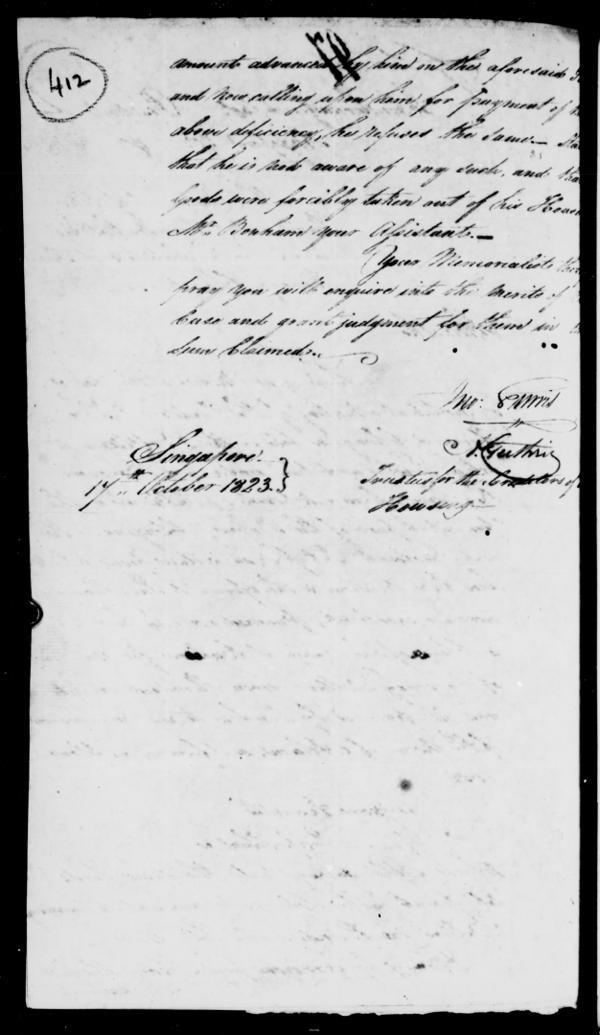 412
amount advanced by him on the aforesaid
and now calling upon him for payment of
above deficiency, he refuses the same —
that he is not aware of any such, and
Goods were forcibly taken out of his
Mr. Bonham your Assistant. —
Your Memorialists
pray you will enquire into the merits of
Case and grant judgment for them in
Sum Claimed.
Guthrie
Singapore
17th October 1823.
Trustees for the Creditors of